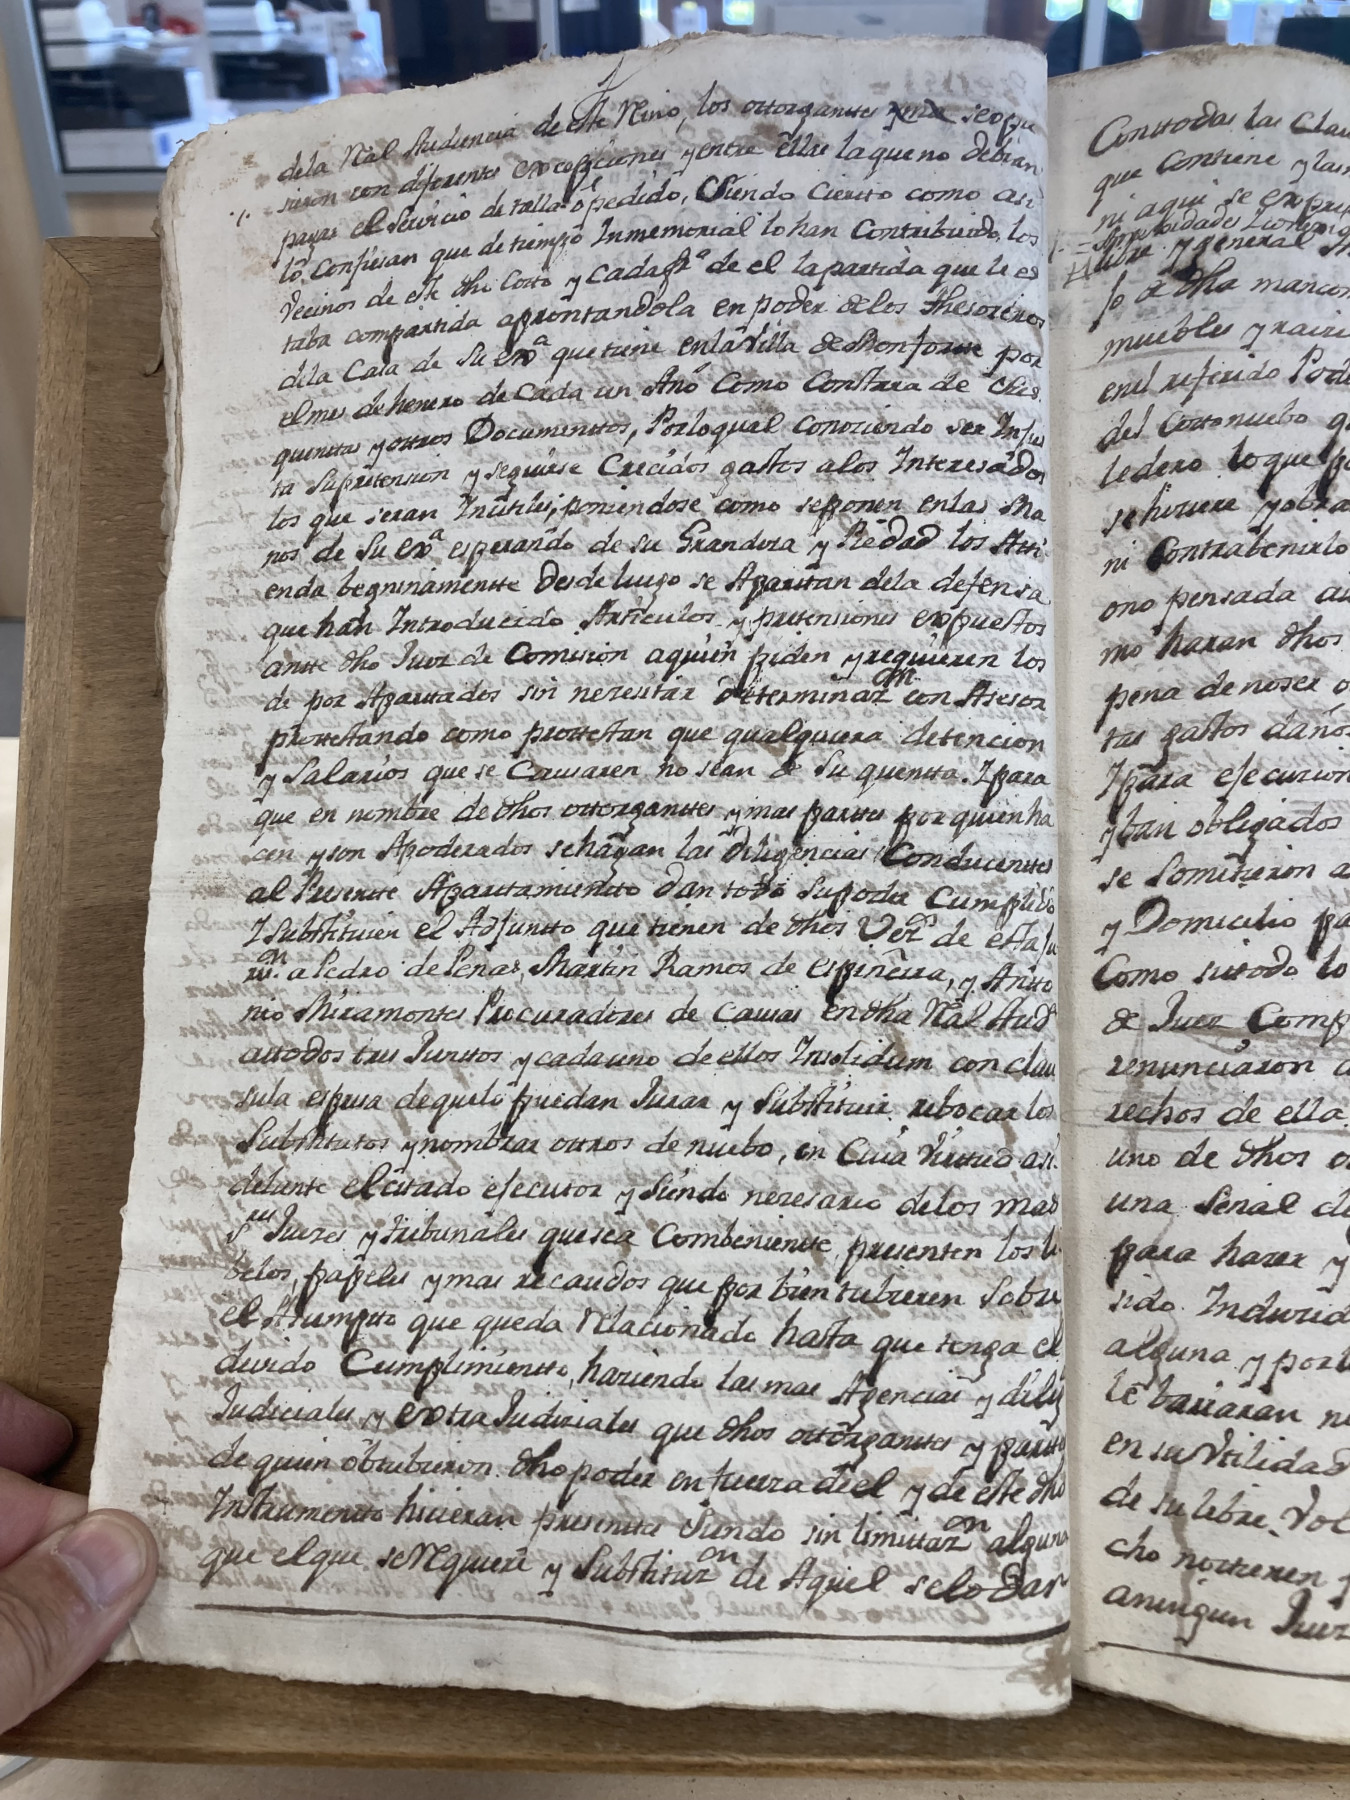 dela Rl Audiencia de este Reino, los ottorgantes seopu
sieron con diferentes excepciones y entre ellas la que no debian
pagar el Servicio de talla o pedido, Siendo Cierto como asi
lo Confiesan que de tiempo Inmemorial lo han Contribuido, los
Vecinos de este dho Coto y cada de el la partida que le es
taba compartida aprontandola en poder de los thesoreros
dela Casa de Su exa que tiene en la Villa de Monforte por
el mes de henero de Cada un Año Como Constara de
quenttas y ottros Documenttos, Por lo qual Conociendo ser Injus
ta Su pretension y seguirse Crecidos gastos a los Interesados
los que seran Inutiles, poniendose como se ponen en las Ma
nos de Su exa esperando de su Grandeza y Piedad los Atti
enda begninamentte desde luego se Aparttan dela defensa
que han Introducido Articulos y pretensiones expuestos
antte dho Juez de Comision a quien piden y requieren los
de por Aparttados sin necesitar determinazon con Asesor
prottestando como prottestan que qualquiera detencion
y Salarios que se Causaren no sean de Su quentta. Y para
que en nombre de dhos ottorganttes y mas parttes por quien ha
cen y son Apoderados se hagan las diligencias Conducenttes
al Presentte Aparttamientto dan todo Su poder Cumplido
Y Substituien el Adjuntto que tienen de dhos Vezos de esta Ju
on a Pedro de Penas, Martin Ramos de espiñeira, y Antto
nio Miramontes Procuradores de Causas en dha Rl Audª
a ttodos tres Junttos y cada uno de ellos Insolidum con clau
sula espresa de que lo puedan Jurar y Substituir, rebocar los
Substitutos y nombrar ottros de nuebo, en Cuia Virtud asi
delante el citado ejecutor y Siendo necesario delos mas
Sres Jueces y tribunales que sea Combenientte, presenten los li
belos, papeles y mas recaudos que por bien tubieren Sobre
el Asumpto que queda relacionado hasta que tenga el
devido Cumplimientto, haciendo las mas Agencias y dilig
Judiciales y extra Judiciales que dhos ottorganttes y parttes
de quien obtubieron dho poder en fuerza de el y de este dho
Instrumentto hicieran presenttes Siendo sin limittazon alguna
que el que se Requiere y Substituzon de Aquel se lo dan
Con todas las Clau
que Contiene y las
ni aqui se expre
libre y general
jo de dha mancom
muebles y raices
en el referido Pod
del Coto nuebo q
ledero lo que p
se hiciere y obra
ni Contrabenirlo
o no pensada
mo haran dhos
pena de no ser o
tas gastos daños
Y para ejecucion
y ban obligados
se Somitieron a
y Domicilio pa
Como si todo lo
de Juez Comp
renunciaron
rechos de ella
uno de dhos o
una Señal de
para hacer y
sido Inducid
alguna y por
le baiaran n
en su Utilidad
de su libre Vol
cho
a ningun Juez